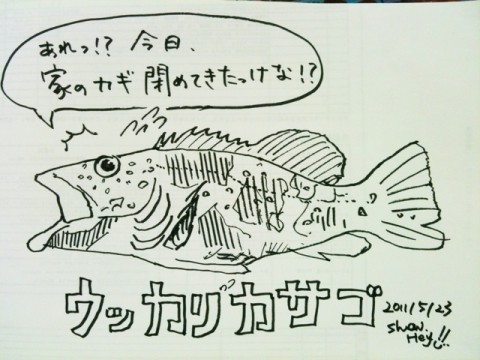 あれっ!? 今日、
家のカギ 閉めてきたっけな!?
ウッカリカサゴ
2011/5/23
show.
Hey!!